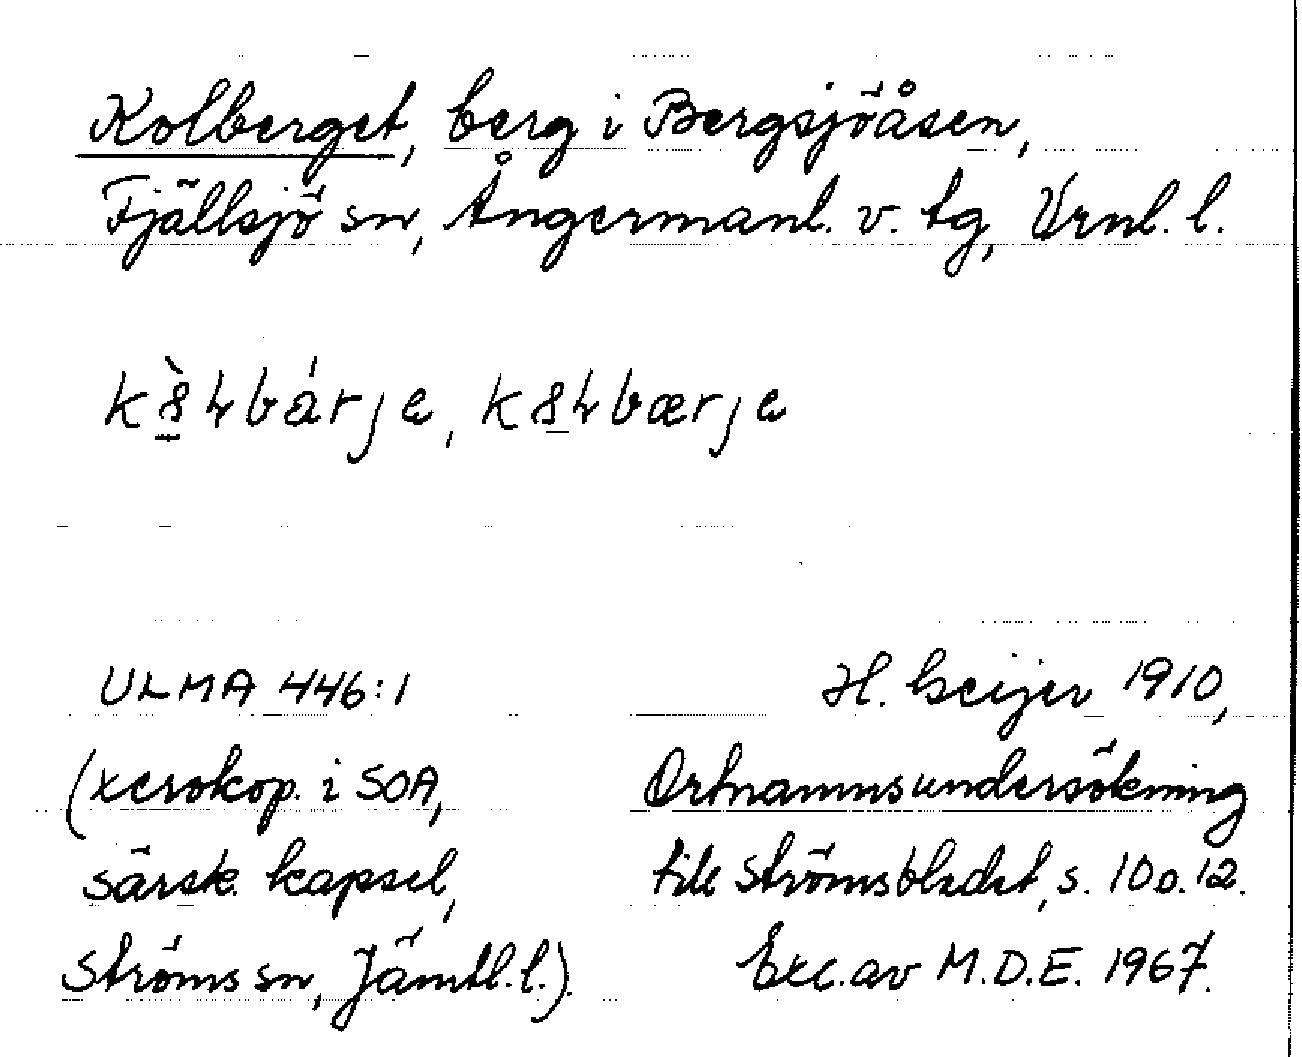 Kolberget, berg i Bergsjöåsen,
Fjällsjö sn, Ångermanl. v. tg, Vrnl. l.
ULMA 446:1
(xerokop. i SOA,
särsk. kapsel,
Ströms sn, Jämtl. l.).
H. Geijer 1910,
Ortnamnsundersökning
till Strömsbladet, s. 10 o. 12.
Exc. av M.D.E. 1967.